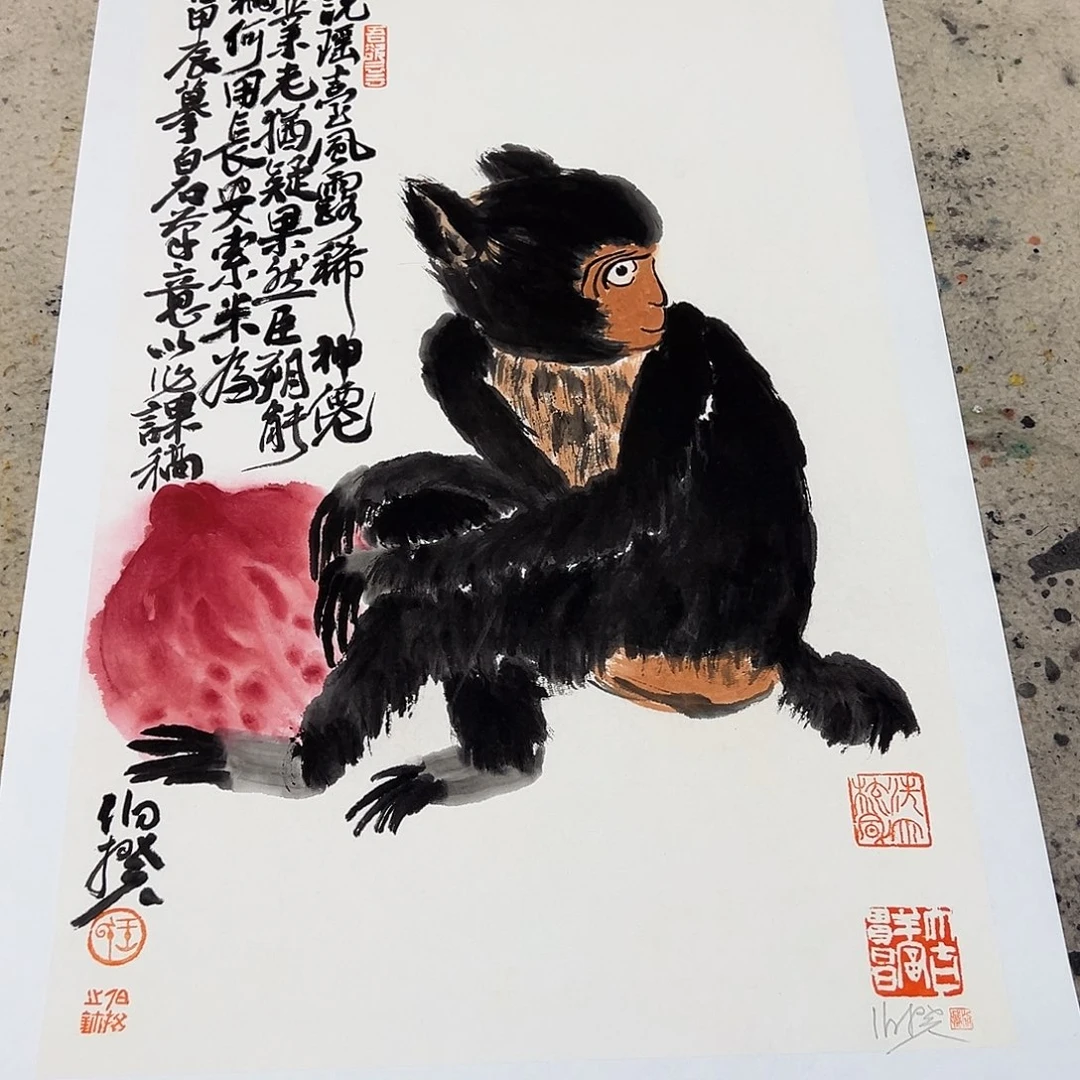 說瑤臺風露稀 神僊
業老猶疑果然臣朔能
何用長安索米為
甲辰摹白石筆意以作課稿
伯揆
伯揆